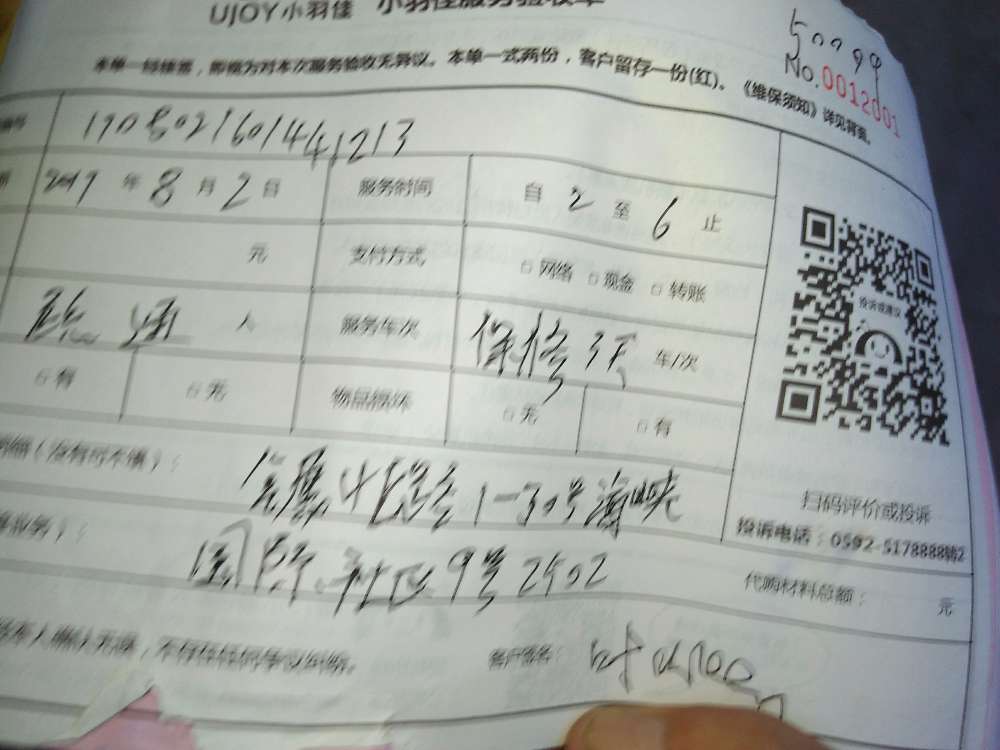 UJOY小羽佳 小羽佳服务验收单
50099
No.0012001
本单一经签署，即视为对本次服务验收无异议。本单一式两份，客户留存一份(红)。《维保须知》详见背面。
编号 1908021601441213
2019 年 8 月 2 日 服务时间 自 2 至 6 止
元 支付方式 网络 现金 转账
人 服务车次 保修 3天 车/次
有 无 物品损坏 无 有
投诉或建议
(没有可不填)：
1-30号海峡
国际社区9号2502
扫码评价或投诉
投诉电话：0592-5178888转2
代购材料总额： 元
客户签名：